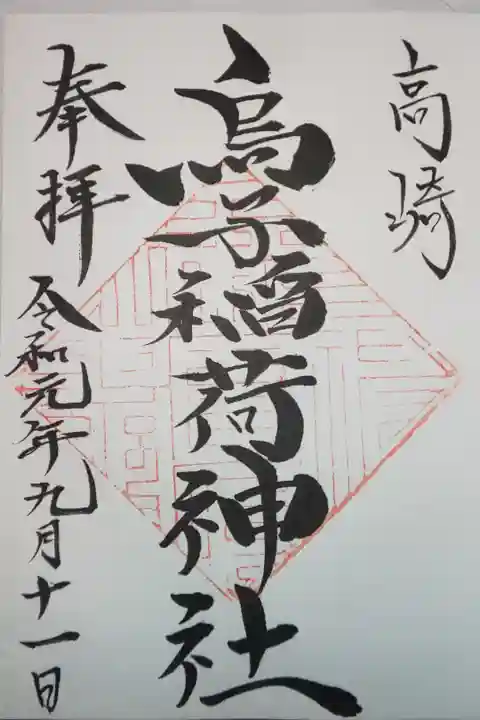 高騎
烏子稲荷神社
奉拝
令和元年九月十一日